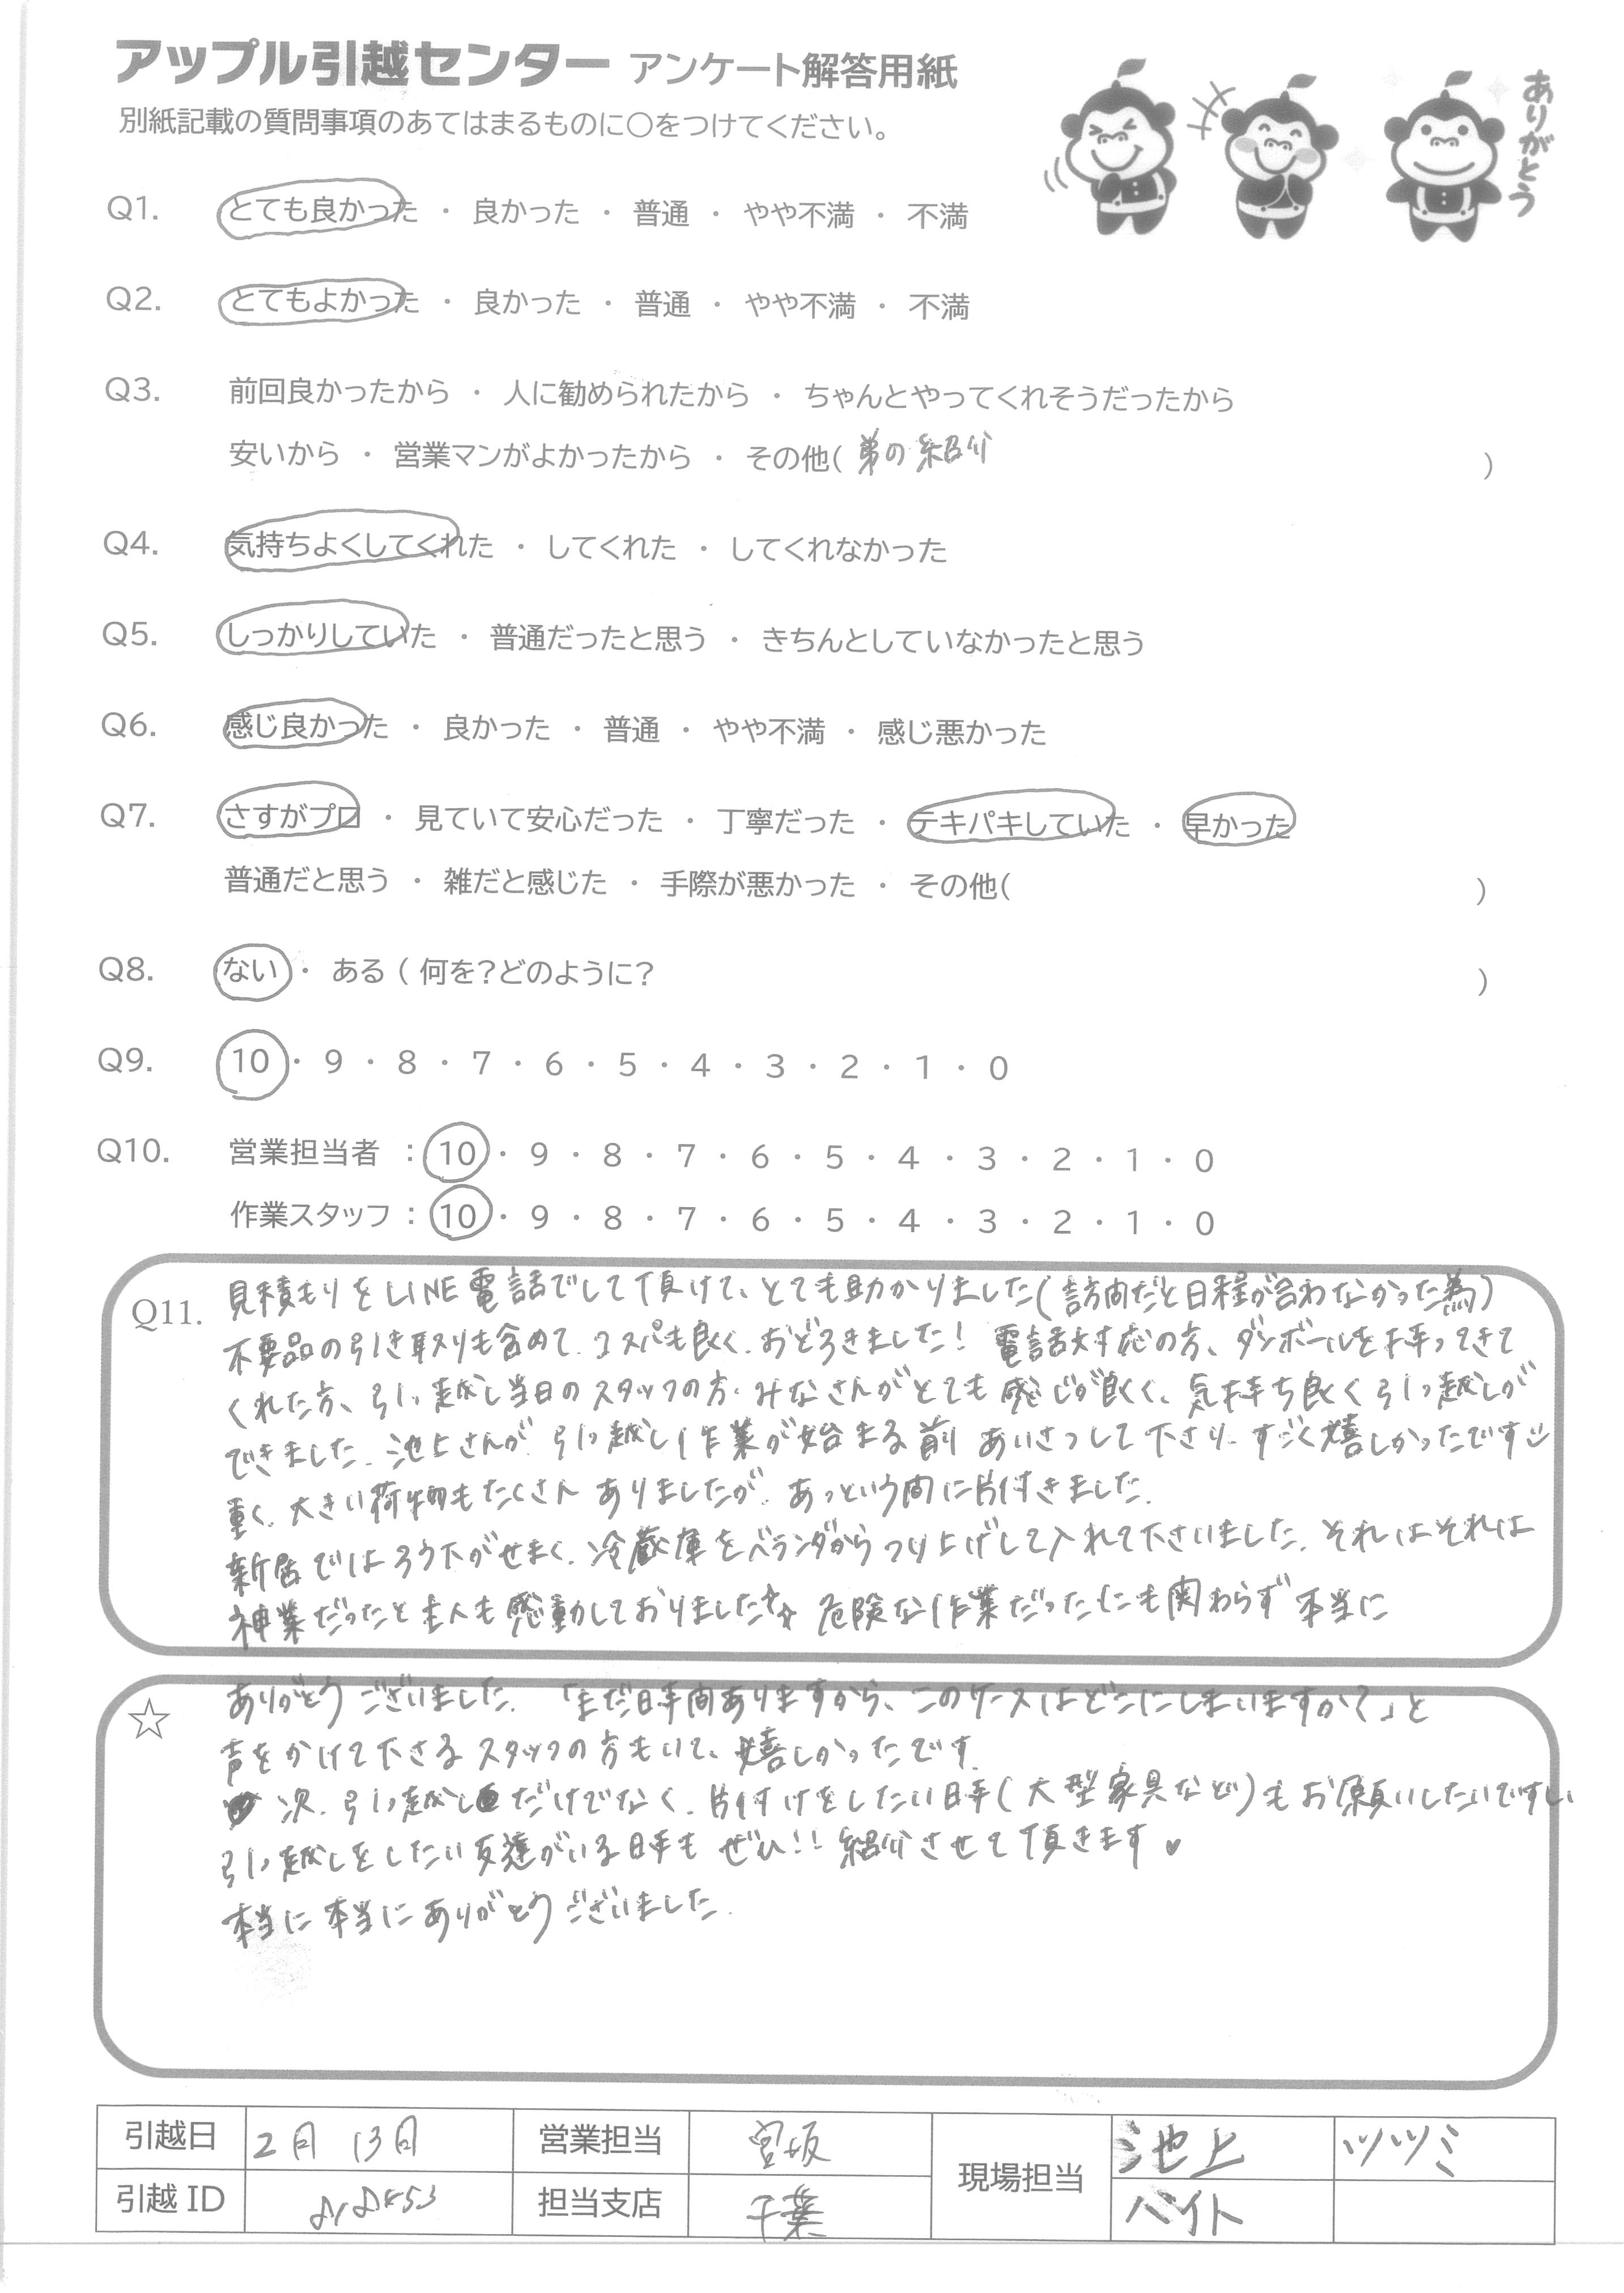 アップル引越センター アンケート解答用紙
別紙記載の質問事項のあてはまるものに○をつけてください。
ありがとう
Q1. とても良かった ・ 良かった ・ 普通 ・ やや不満 ・ 不満
Q2. とてもよかった ・ 良かった ・ 普通 ・ やや不満 ・ 不満
Q3. 前回良かったから ・ 人に勧められたから ・ ちゃんとやってくれそうだったから
安いから ・ 営業マンがよかったから ・ その他( 弟の紹介 )
Q4. 気持ちよくしてくれた ・ してくれた ・ してくれなかった
Q5. しっかりしていた ・ 普通だったと思う ・ きちんとしていなかったと思う
Q6. 感じ良かった ・ 良かった ・ 普通 ・ やや不満 ・ 感じ悪かった
Q7. さすがプロ ・ 見ていて安心だった ・ 丁寧だった ・ テキパキしていた ・ 早かった
普通だと思う ・ 雑だと感じた ・ 手際が悪かった ・ その他( )
Q8. ない ・ ある ( 何を?どのように? )
Q9. 10 ・ 9 ・ 8 ・ 7 ・ 6 ・ 5 ・ 4 ・ 3 ・ 2 ・ 1 ・ 0
Q10. 営業担当者 : 10 ・ 9 ・ 8 ・ 7 ・ 6 ・ 5 ・ 4 ・ 3 ・ 2 ・ 1 ・ 0
作業スタッフ : 10 ・ 9 ・ 8 ・ 7 ・ 6 ・ 5 ・ 4 ・ 3 ・ 2 ・ 1 ・ 0
Q11. 見積もりをLINE電話でして頂けて、とても助かりました(訪問だと日程が合わなかった為)
不要品の引き取りも含めて、コスパも良く、おどろきました! 電話対応の方、ダンボールを持ってきて
くれた方、引っ越し当日のスタッフの方、みなさんがとても感じが良く、気持ち良く引っ越しが
できました。池上さんが、引っ越し作業が始まる前 あいさつして下さり、すごく嬉しかったです
重く、大きい荷物もたくさんありましたが、あっという間に片付きました。
新居ではろう下がせまく、冷蔵庫をベランダからつり上げして入れて下さいました。それはそれは
神業だったと主人も感動しておりました☆ 危険な作業だったにも関わらず本当に
☆ ありがとうございました。「まだ時間ありますから、このケースはどこにしまいますか?」と
声をかけて下さるスタッフの方もいて、嬉しかったです。
次、引っ越しだけでなく、片付けをしたい時(大型家具など)もお願いしたいです
引っ越しをしたい友達がいる時も ぜひ!! 紹介させて頂きます♥
本当に本当にありがとうございました。
引越日 2月 13日 営業担当 宮坂 現場担当 池上 ツツミ
引越 ID 担当支店 千葉 バイト